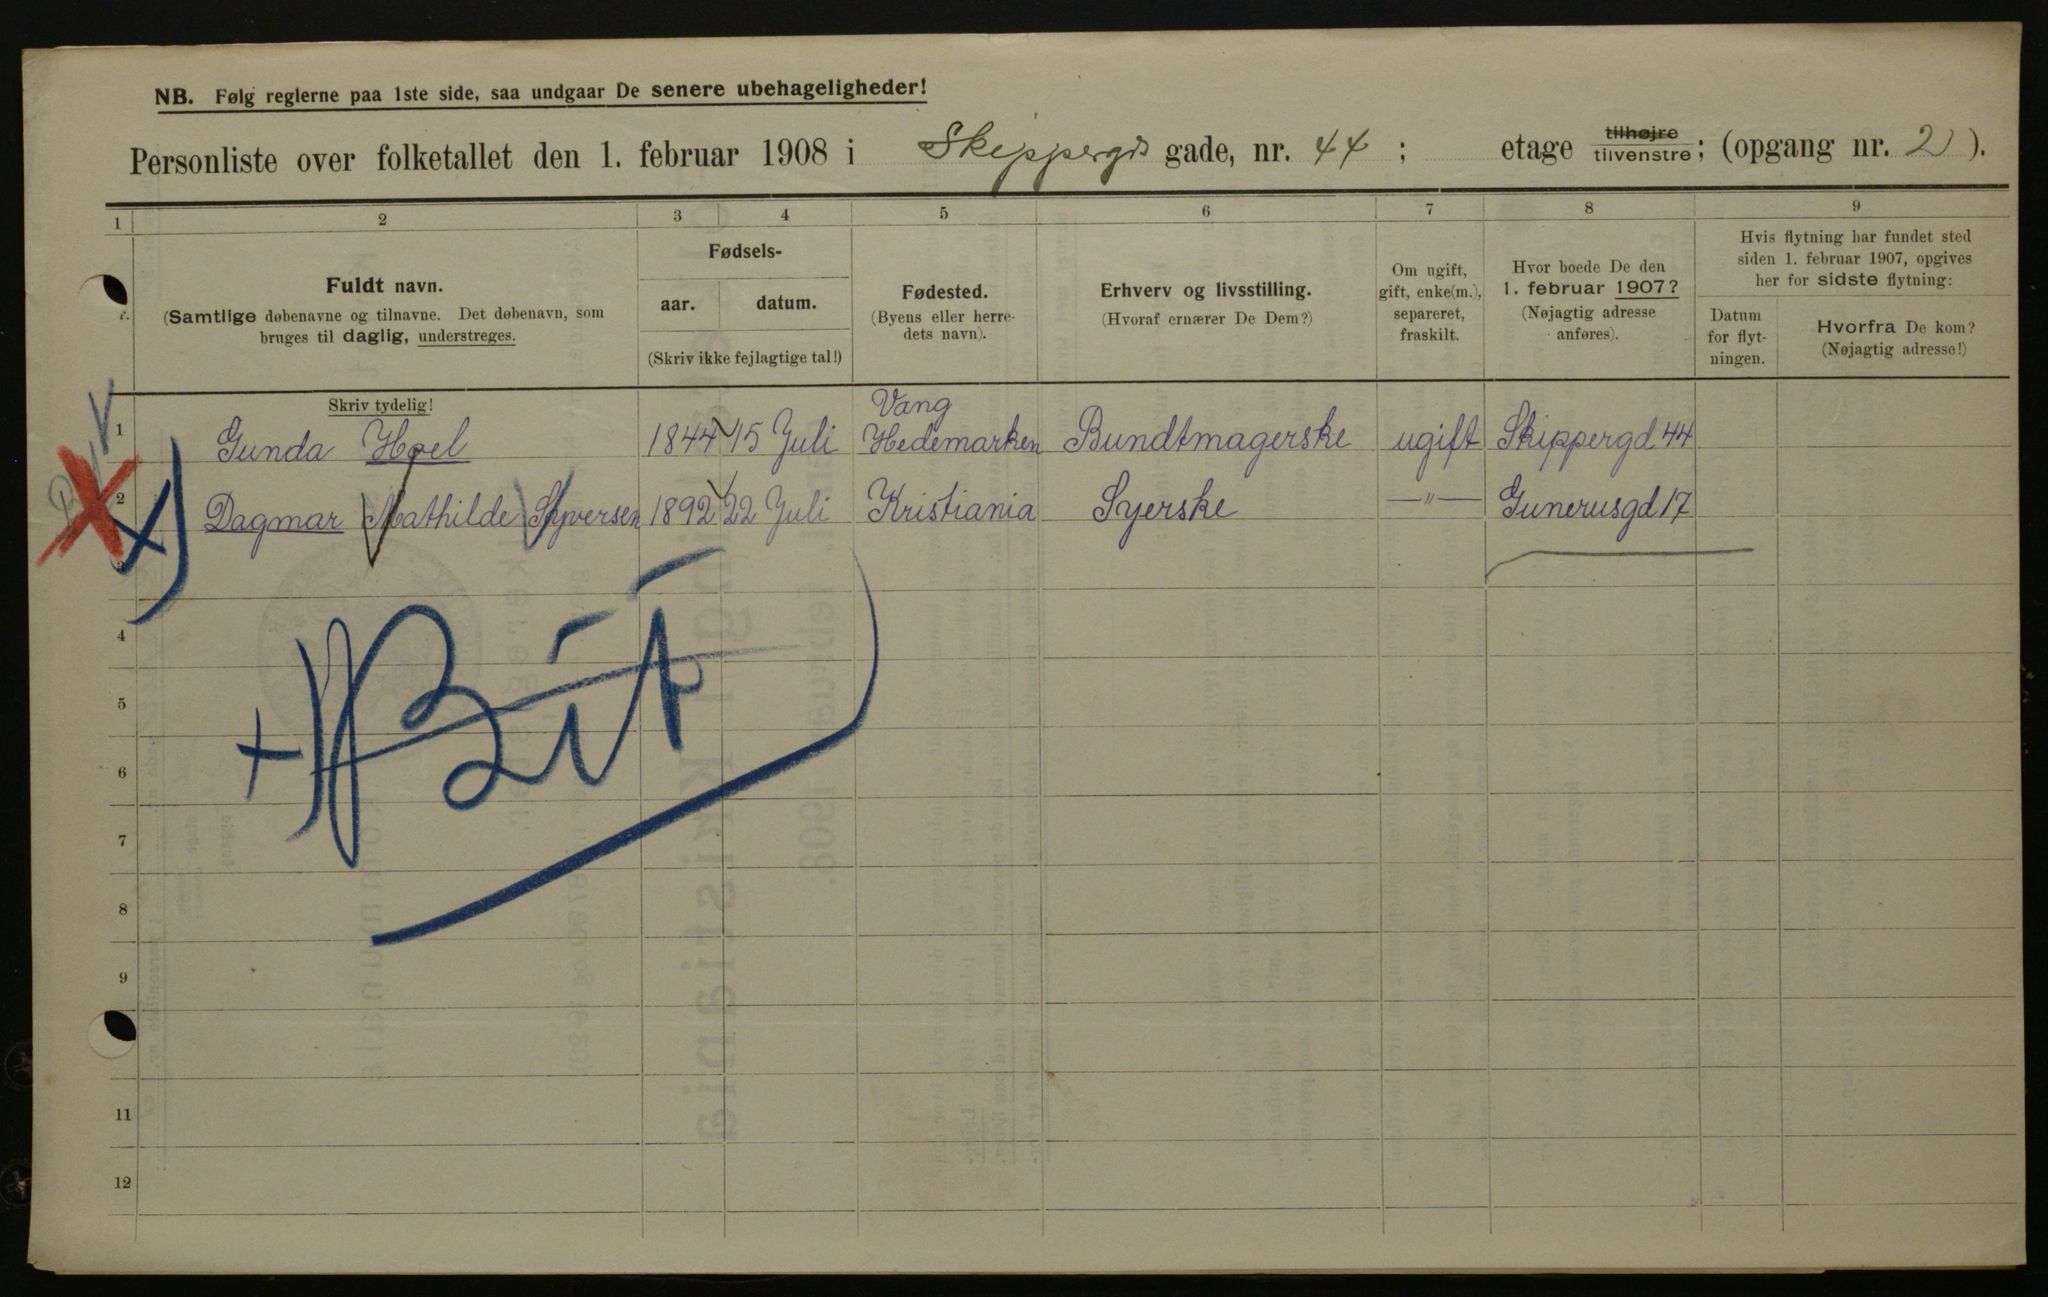 NB. Følg reglerne paa 1ste side, saa undgaar De senere ubehageligheder!
Personliste over folketallet den 1. februar 1908 i Skippergd gade, nr. 44 ; etage tilhøjre tilvenstre ; (opgang nr. 2 ).
1 2 3 4 5 6 7 8 9
Fuldt navn.
(Samtlige døbenavne og tilnavne. Det døbenavn, som
bruges til daglig, understreges.
Skriv tydelig!
Fødsels-
aar. datum.
(Skriv ikke fejlagtige tal!)
Fødested.
(Byens eller herre-
dets navn).
Erhverv og livsstilling.
(Hvoraf ernærer De Dem?)
Om ugift,
gift, enke(m.),
separeret,
fraskilt.
Hvor boede De den
1. februar 1907?
(Nøjagtig adresse
anføres).
Hvis flytning har fundet sted
siden 1. februar 1907, opgives
her for sidste flytning:
Datum
for flyt-
ningen.
Hvorfra De kom?
(Nøjagtig adresse!)
1 Gunda Hoel 1844 15 Juli Vang Hedemarken Bundtmagerske ugift Skippergd 44
2 Dagmar Mathilde Syversen 1892 22 Juli Kristiania Syerske —"— Gunerusgd 17
3
4
5
6
7
8
9
11
12